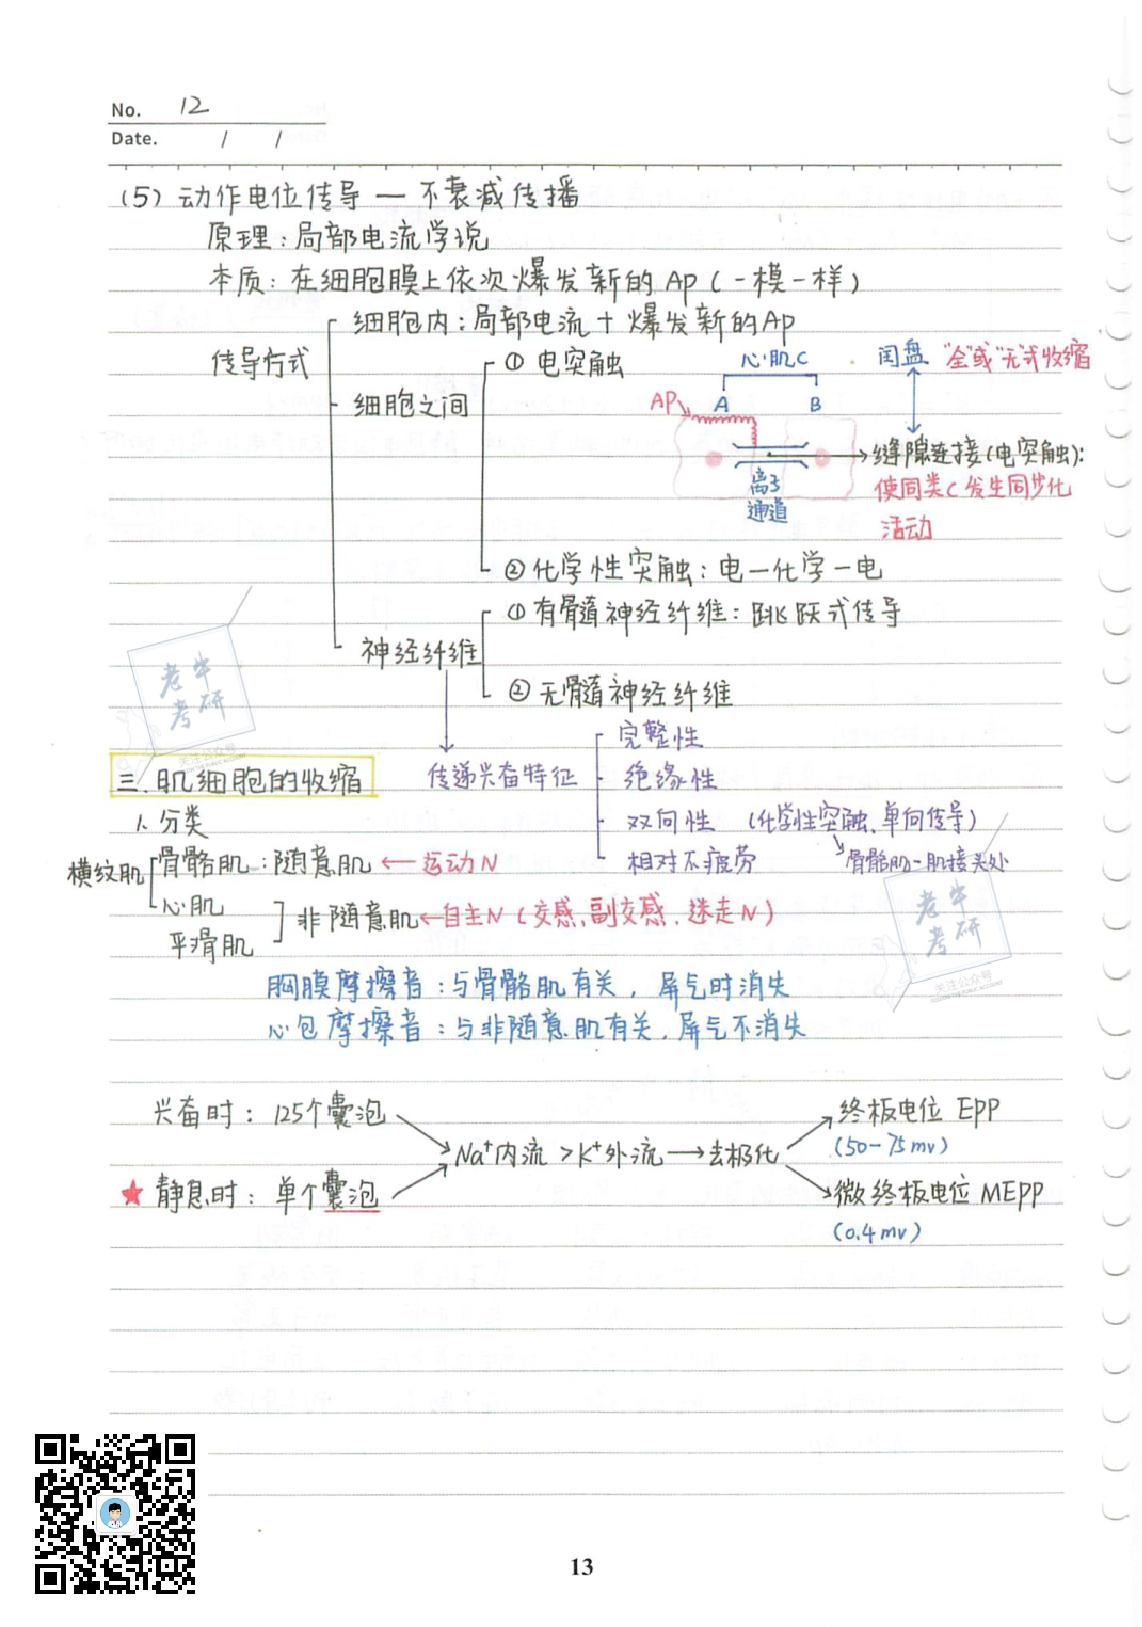 No. 12
Date. / /
(5) 动作电位传导 — 不衰减传播
原理：局部电流学说
本质：在细胞膜上依次爆发新的AP(一模一样)
传导方式
细胞内：局部电流＋爆发新的AP
细胞之间
① 电突触
心肌C
A B
AP
离子
通道
闰盘 "全"或"无"式收缩
缝隙连接(电突触)：
使同类C发生同步化
活动
② 化学性突触：电—化学—电
神经纤维
① 有骨髓神经纤维：跳跃式传导
② 无骨髓神经纤维
传递兴奋特征
完整性
绝缘性
双向性 (化学性突触、单向传导)
骨骼肌-肌接头处
相对不疲劳
三.肌细胞的收缩
1. 分类
横纹肌
骨骼肌：随意肌 ← 运动N
心肌
平滑肌
非随意肌 ← 自主N (交感、副交感、迷走N)
胸膜摩擦音：与骨骼肌有关，屏气时消失
心包摩擦音：与非随意肌有关，屏气不消失
兴奋时：125个囊泡
★ 静息时：单个囊泡
Na⁺内流 > K⁺外流 → 去极化
终板电位 EPP
(50-75mv)
微终板电位 MEPP
(0.4mv)
老牛
考研
关注公众号
老牛
考研
关注公众号
13